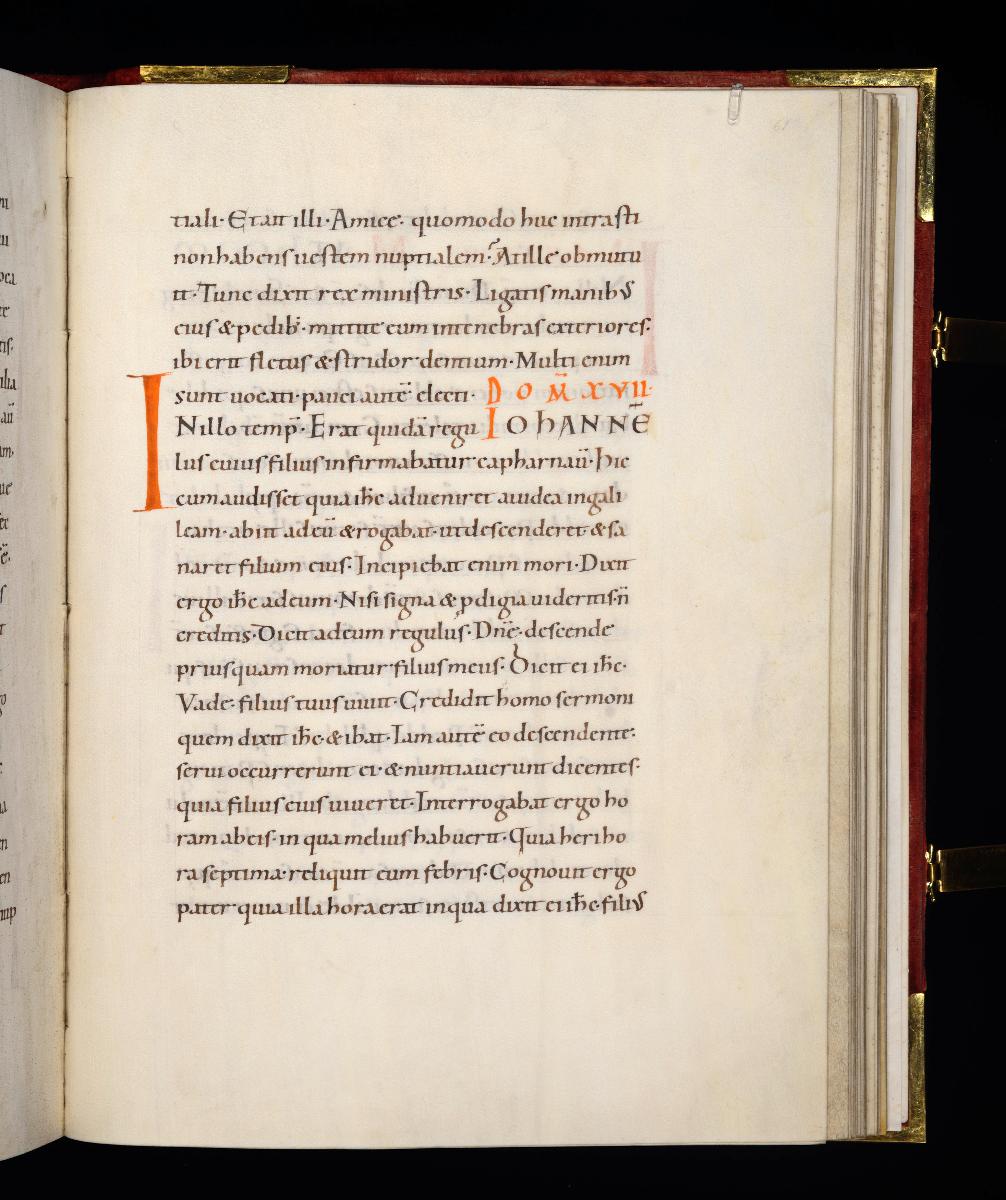 tiali· Et ait illi· Amice· quomodo huc intrasti
non habens uestem nuptialem· At ille obmutu
it· Tunc dixit rex ministris· Ligatis manibus
eius & pedib· mittite eum in tenebras exteriores·
ibi erit fletus & stridor dentium· Multi enim
sunt uocati· pauci autē electi· DOM̄ XVII·
INillo temp̄· Erat quidā regu IOHANNĒ
lus cuius filius infirmabatur capharnaū· hic
cum audisset quia ihc adueniret a iudea in gali
leam· abiit ad eū & rogabat· ut descenderet & sa
naret filium eius· Incipiebat enim mori· Dixit
ergo ihc ad eum· Nisi signa & pdigia uideritis n̄
creditis· Dicit ad eum regulus· Dn̄e· descende
priusquam moriatur filius meus· Dicit ei ihc·
Vade· filius tuus uiuit· Credidit homo sermoni
quem dixit ihc· & ibat· Iam autē eo descendente·
serui occurrerunt ei· & nuntiauerunt dicentes·
quia filius eius uiueret· Interrogabat ergo ho
ram ab eis· in qua melius habuerit· Quia heri ho
ra septima· reliquit eum febris· Cognouit ergo
pater· quia illa hora erat in qua dixit ei ihc· filius